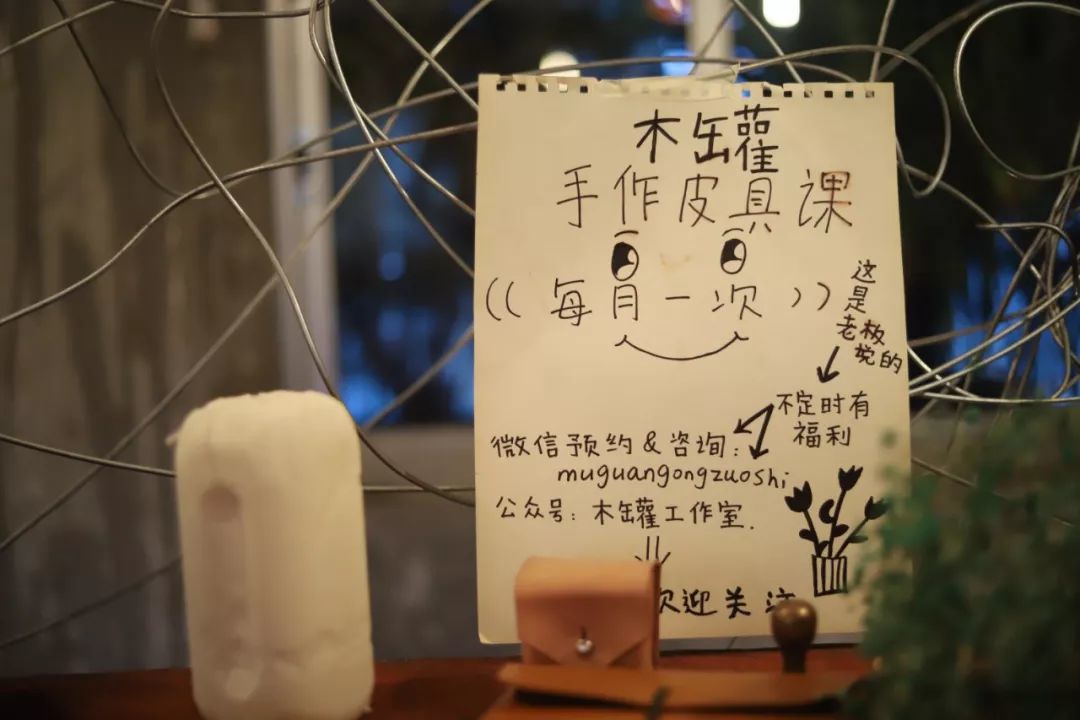 木缶雚
手作皮具课
((每月一次))
这是
老板
挽的
不定时有
福利
微信预约&咨询:
muguangongzuoshi
公众号:木缶雚工作室.
迎关